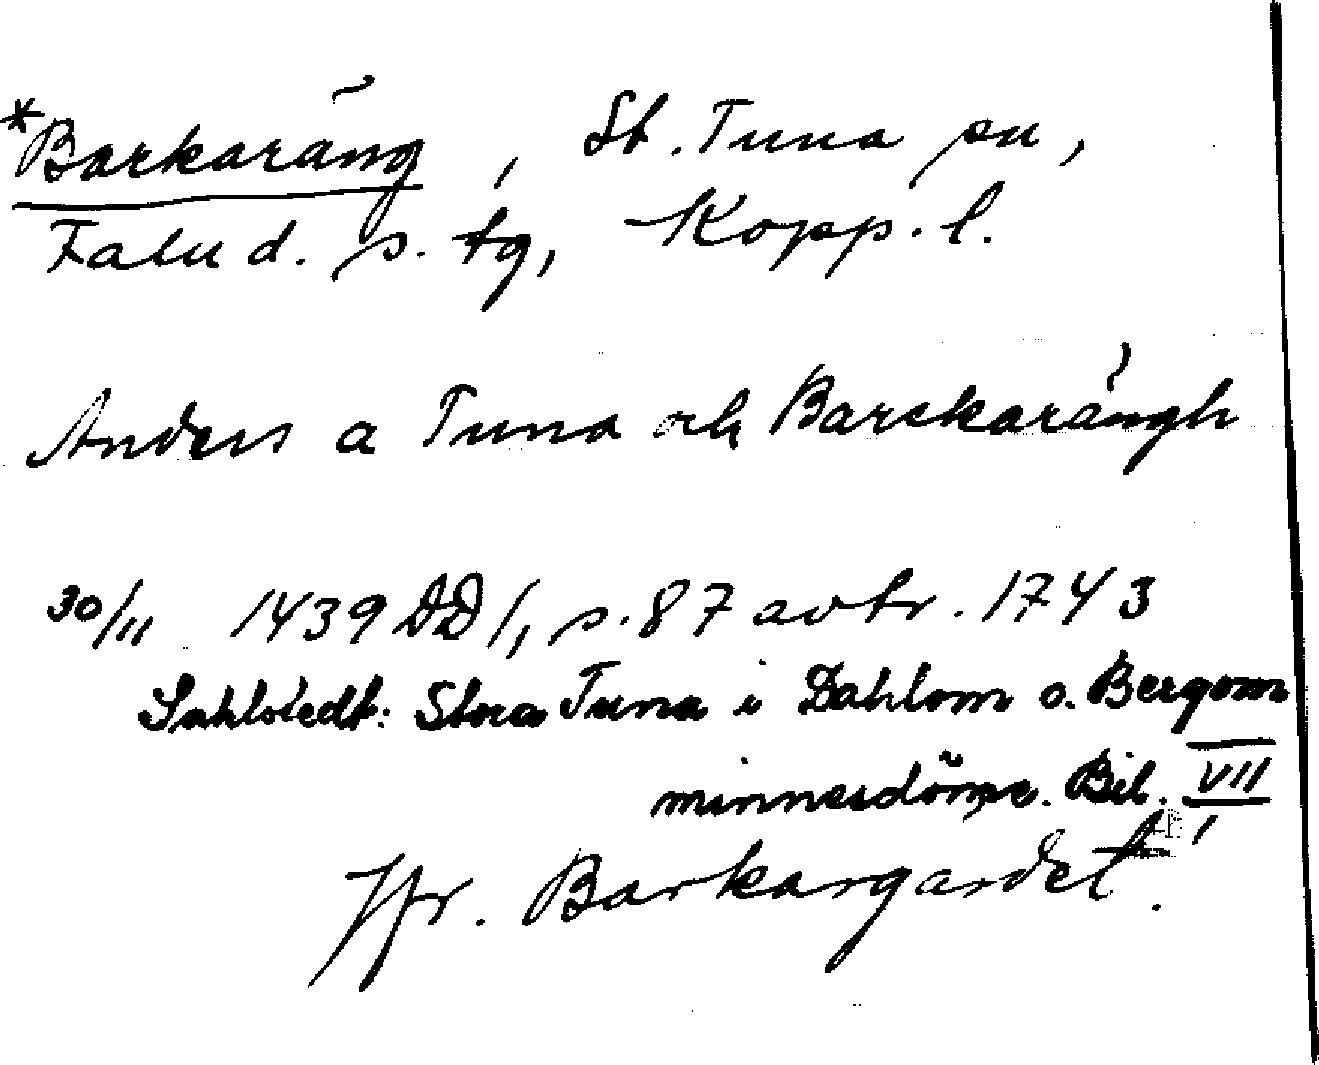 *Barkaräng, St. Tuna sn,
Falu d. s. tg, Kopp. l.
Anders a Tuna och Barckarängh
30/11 1439 DD 1, s. 87 avtr. 1743
Sahlstedt: Stora Tuna i Dahlom o. Bergom
minnesdöme. Bil. VII
Jfr. Barkargardet.